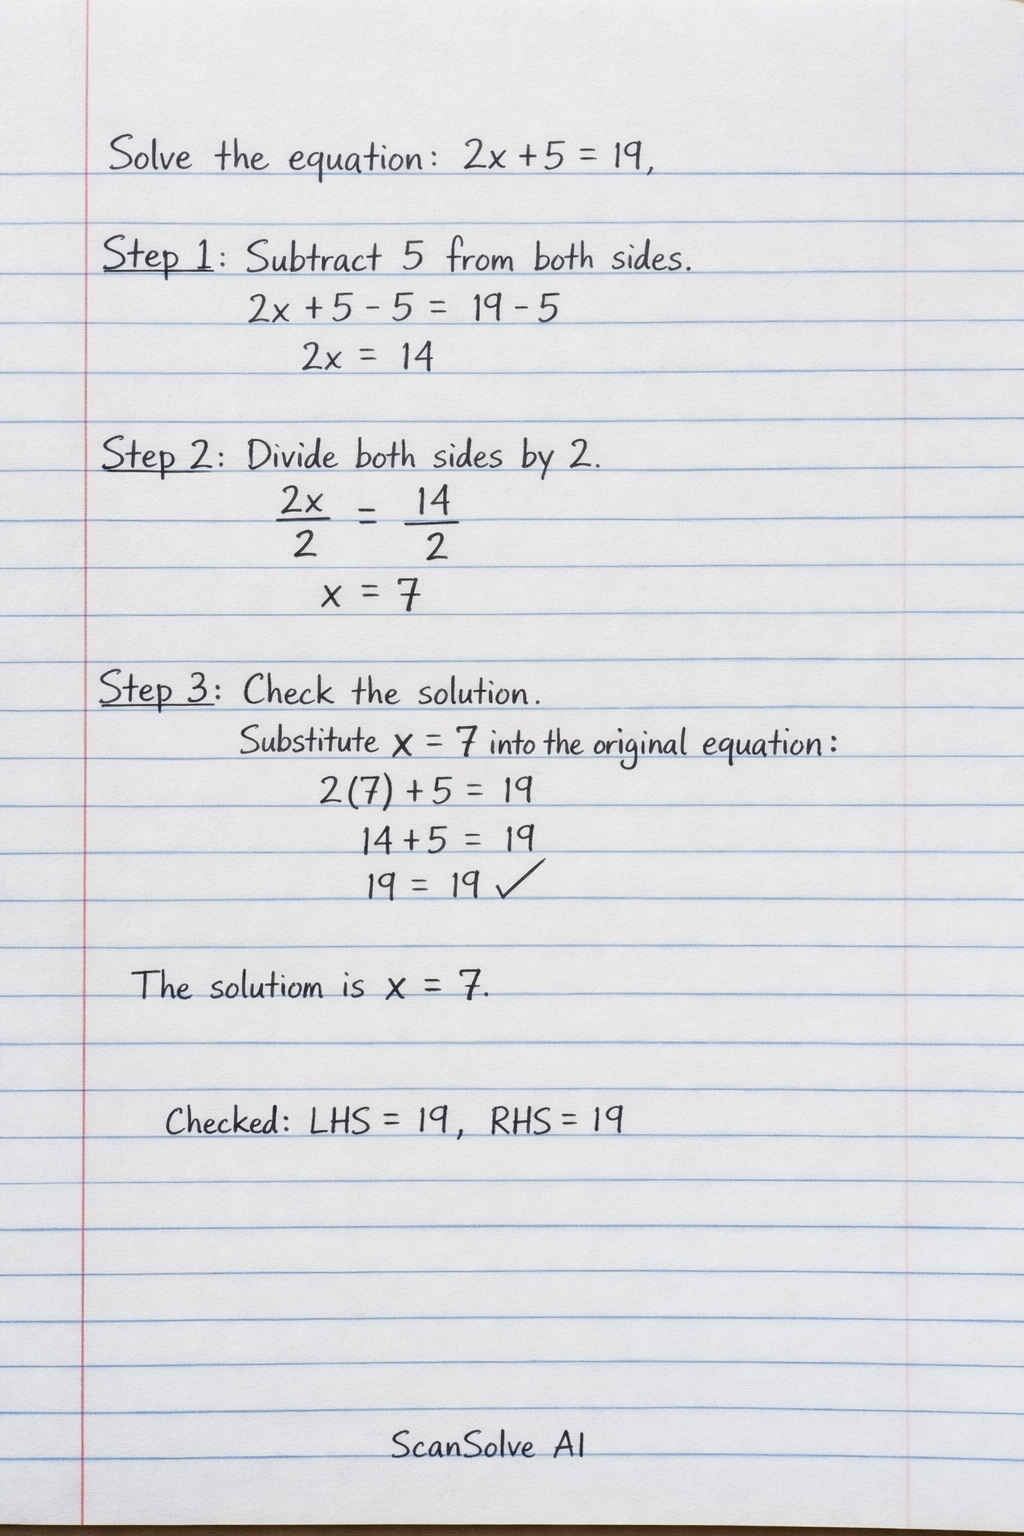 Solve the equation: 2x + 5 = 19,
Step 1: Subtract 5 from both sides.
2x + 5 - 5 = 19 - 5
2x = 14
Step 2: Divide both sides by 2.
2x/2 = 14/2
x = 7
Step 3: Check the solution.
Substitute x = 7 into the original equation:
2(7) + 5 = 19
14 + 5 = 19
19 = 19 ✓
The solutiom is x = 7.
Checked: LHS = 19, RHS = 19
ScanSolve AI